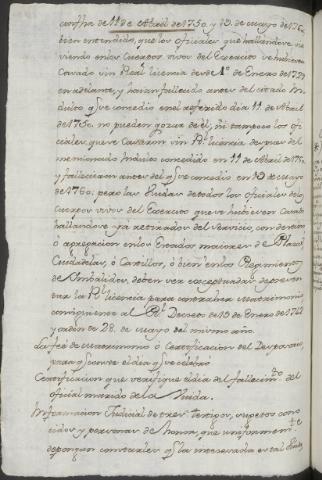 confha de 11 de Abril de 1750. y 13. de mayo de 176
bien entendido, que los oficiales que hallandose si
viendo en los Cuerpos vivos del Exercito se hubieren
Casado sin Real licencia desde 1º de Enero de 1759
en adelante, y haian fallecido antes del citado In
dulto qe se concedio en el referido dia 11 de Abril
de 1750. no pueden gozar de el, ni tampoco los ofi
ciales que se Casaron sin Rl licencia despues del
mencionado Indulto concedido en 11 de Abril de 175
y fallecieron antes del qe se concedio en 13 de mayo
de 1760; pero las viudas de todos los oficiales de los
Cuerpos vivos del Exercito que se hubieren Casado
hallandose ya retirados del servicio, con destino
ò agregacion en los Estados maiores de Plazas,
Ciudadelas, ò Castillos, ò bien en los Regimientos
de Imbalidos, deben ser exceptuadas de presen
tar la Rl licencia para contraher matrimonio
consiguiente al Rl Decreto de 10 de Enero de 1742
y orden de 28 de mayo del mismo año.
La feé de matrimonio ò Certificacion del Desposorio,
para qe conste el dia qe se celebrò
Certificacion que verifique el dia del fallecimto del
oficial marido de la viuda.
Informacion Judicial de tres testigos, sugetos cono
cidos y personas de honra, que uniformemte
depongan constarles qe la interesada es tal viuda